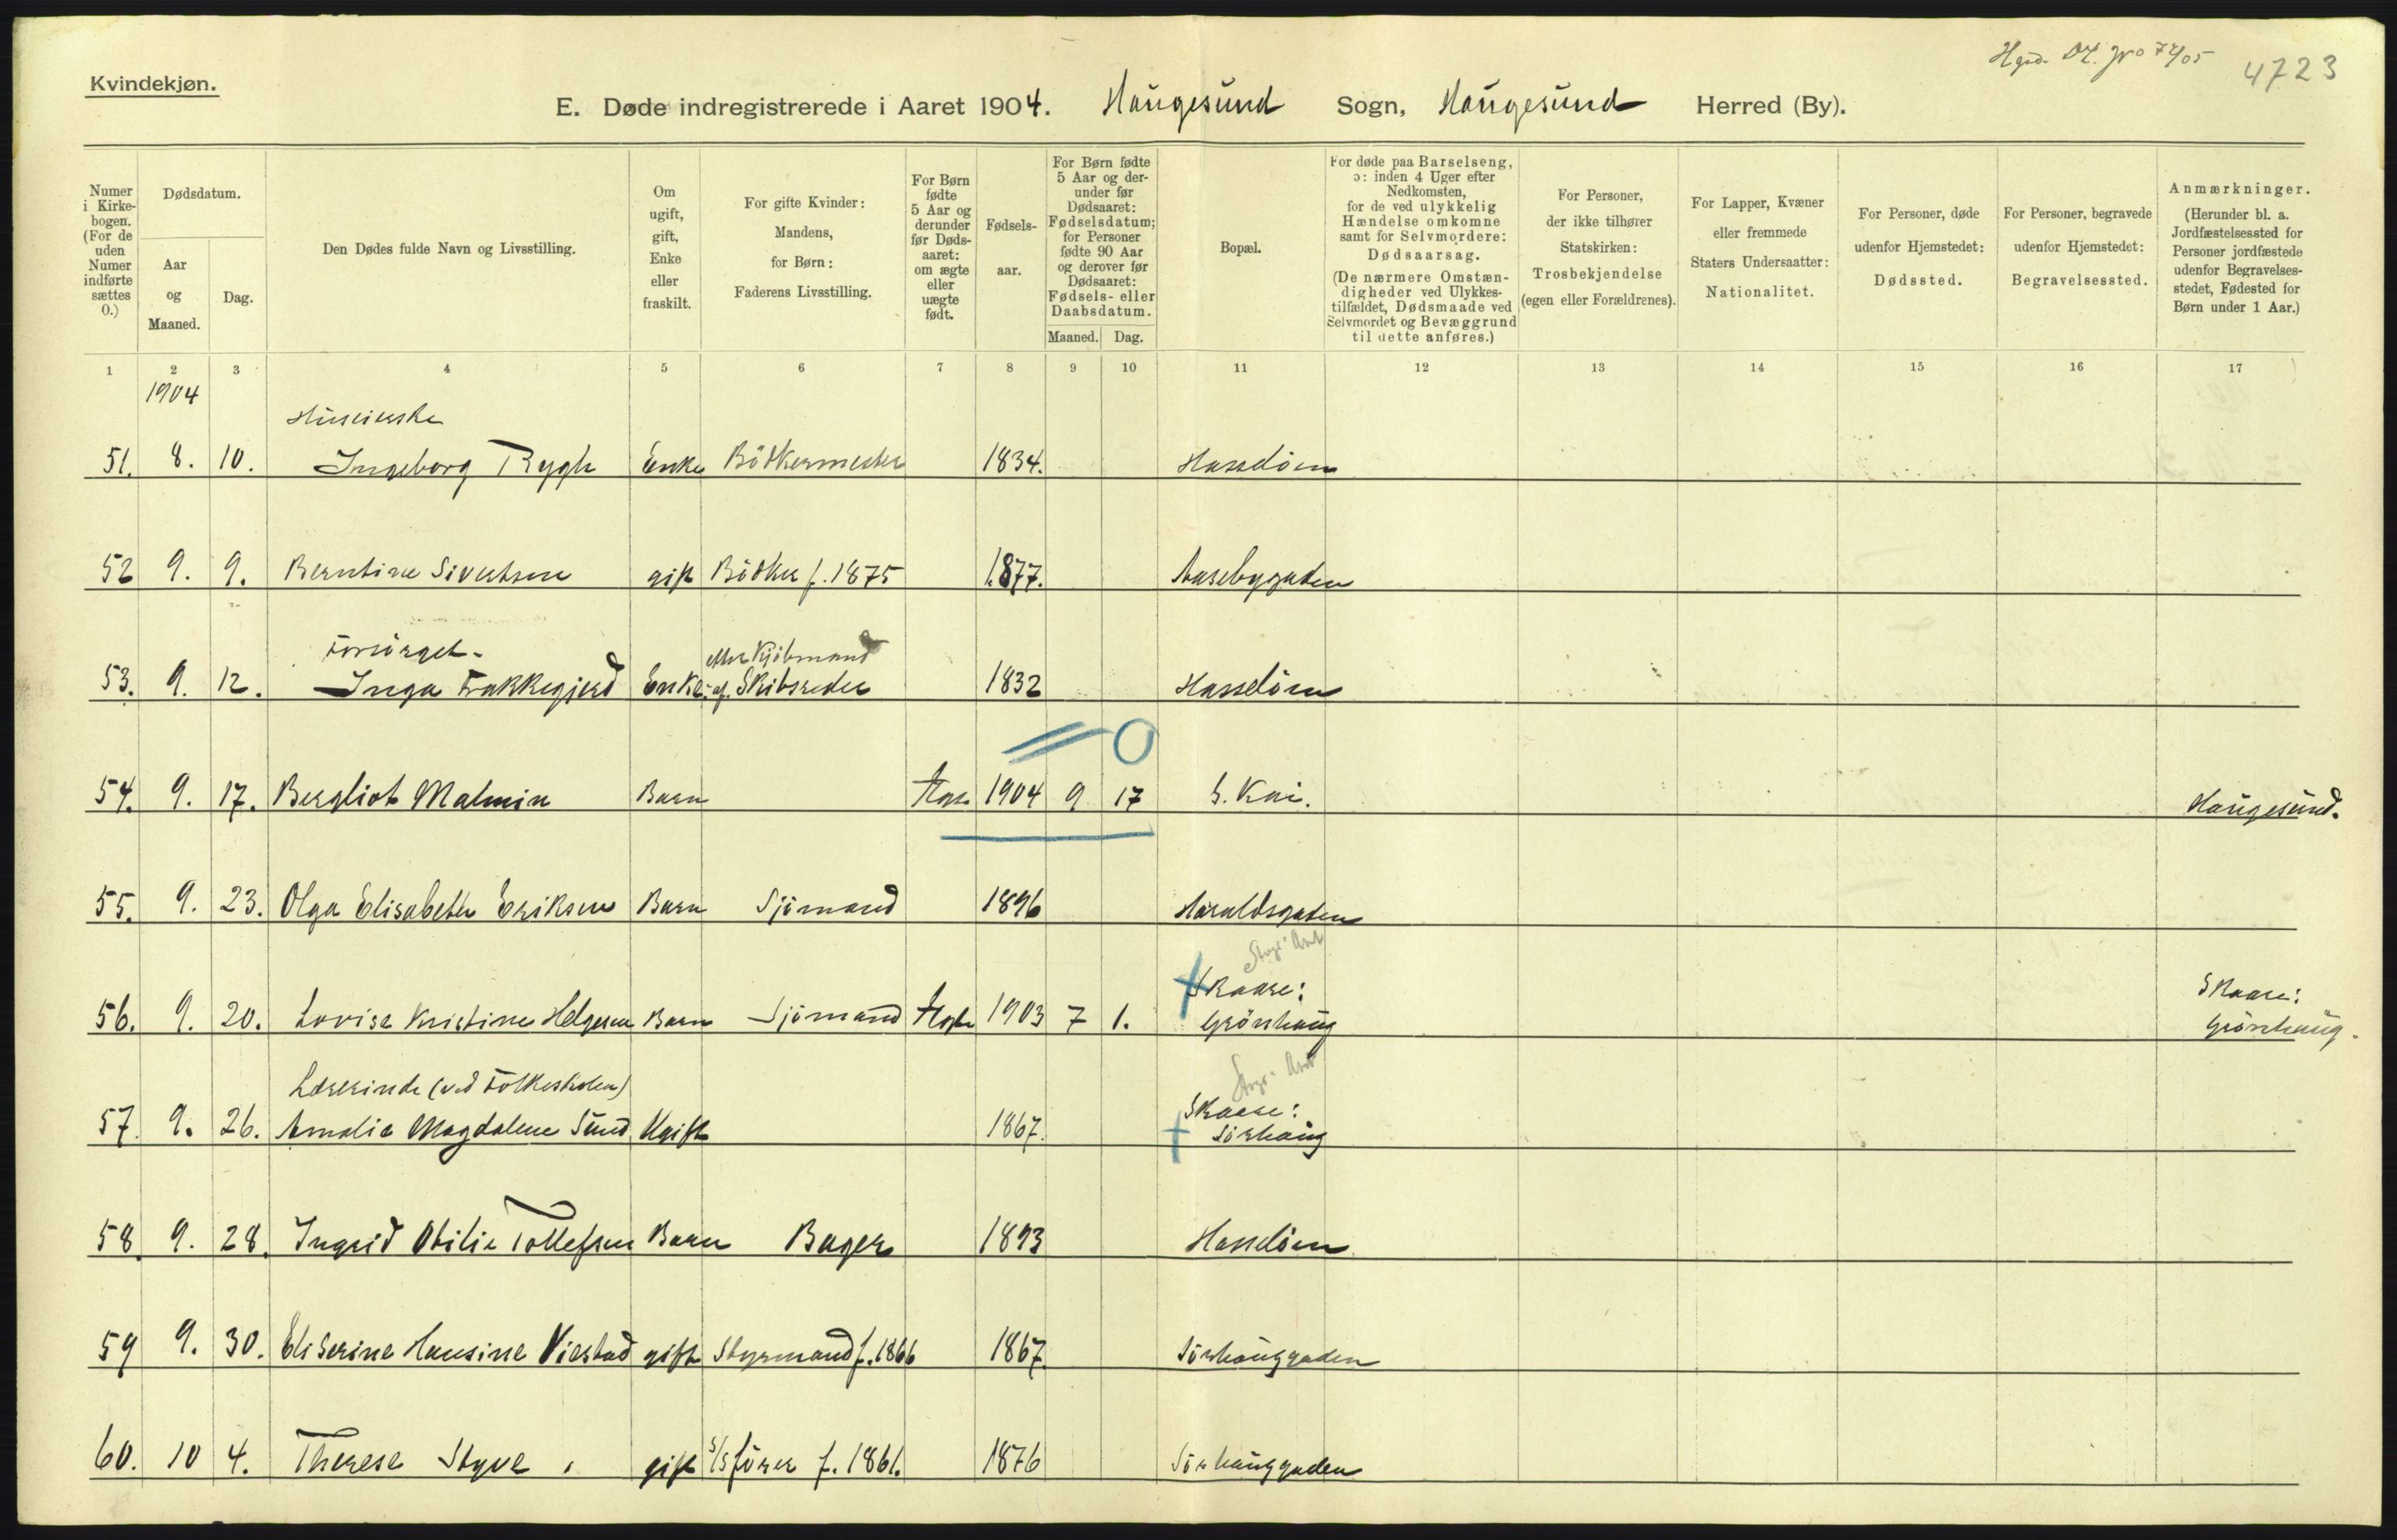 Kvindekjøn.
4723
E. Døde indregistrerede i Aaret 1904. Haugesund Sogn, Haugesund Herred (By).
Numer i Kirke-bogen. (For de uden Numer indførte sættes 0.)
Dødsdatum.
Aar og Maaned.
Dag.
Den Dødes fulde Navn og Livsstilling.
Om ugift, gift, Enke eller fraskilt.
For gifte Kvinder: Mandens, for Børn: Faderens Livsstilling.
For Børn fødte 5 Aar og derunder før Døds-aaret: om ægte eller uægte født.
Fødsels-aar.
For Børn fødte 5 Aar og der-under før Dødsaaret: Fødselsdatum; for Personer fødte 90 Aar og derover før Dødsaaret: Fødsels- eller Daabsdatum.
Maaned. Dag.
Bopæl.
For døde paa Barselseng, ɔ: inden 4 Uger efter Nedkomsten, for de ved ulykkelig Hændelse omkomne samt for Selvmordere: Dødsaarsag. (De nærmere Omstæn-digheder ved Ulykkes-tilfældet, Dødsmaade ved Selvmordet og Bevæggrund til dette anføres.)
For Personer, der ikke tilhører Statskirken: Trosbekjendelse (egen eller Forældrenes).
For Lapper, Kvæner eller fremmede Staters Undersaatter: Nationalitet.
For Personer, døde udenfor Hjemstedet: Dødssted.
For Personer, begravede udenfor Hjemstedet: Begravelsessted.
Anmærkninger. (Herunder bl. a. Jordfæstelsessted for Personer jordfæstede udenfor Begravelses-stedet, Fødested for Børn under 1 Aar.)
1 2 3 4 5 6 7 8 9 10 11 12 13 14 15 16 17
1904
Huseierske
51. 8. 10. Ingeborg Rygh Enke Bödkermester 1834. Hasselöen
52 9. 9. Berntine Sivertsen gift Bödker f. 1875 1877. Aasebygaden
Forsörget. efter Kjöbmand
53. 9. 12. Inga Frakkegjerd Enke af Skibsreder 1832 Hasselöen
54. 9. 17. Bergliot Malmin Barn Ægte 1904 9 17 S. Kai. Haugesund.
55. 9. 23. Olga Elisabeth Eriksen Barn Sjömand 1896 Haraldsgaden
Skaare: Skaare:
56. 9. 20. Lovise Kristine Helgesen Barn Sjömand Ægte 1903 7 1. Grönhaug Grönhaug.
Lærerinde (ved Folkeskolen) Skaare:
57. 9. 26. Amalie Magdalene Sund Ugift 1867. Sörhaug
58. 9. 28. Ingrid Otilie Tollefsen Barn Bager 1893 Hasselöen
59 9. 30. Eliserine Hansine Viestad gift Styrmand f. 1866 1867. Sörhauggaden
60. 10 4. Therese Styve gift S/S förer f. 1861. 1876 Sörhauggaden